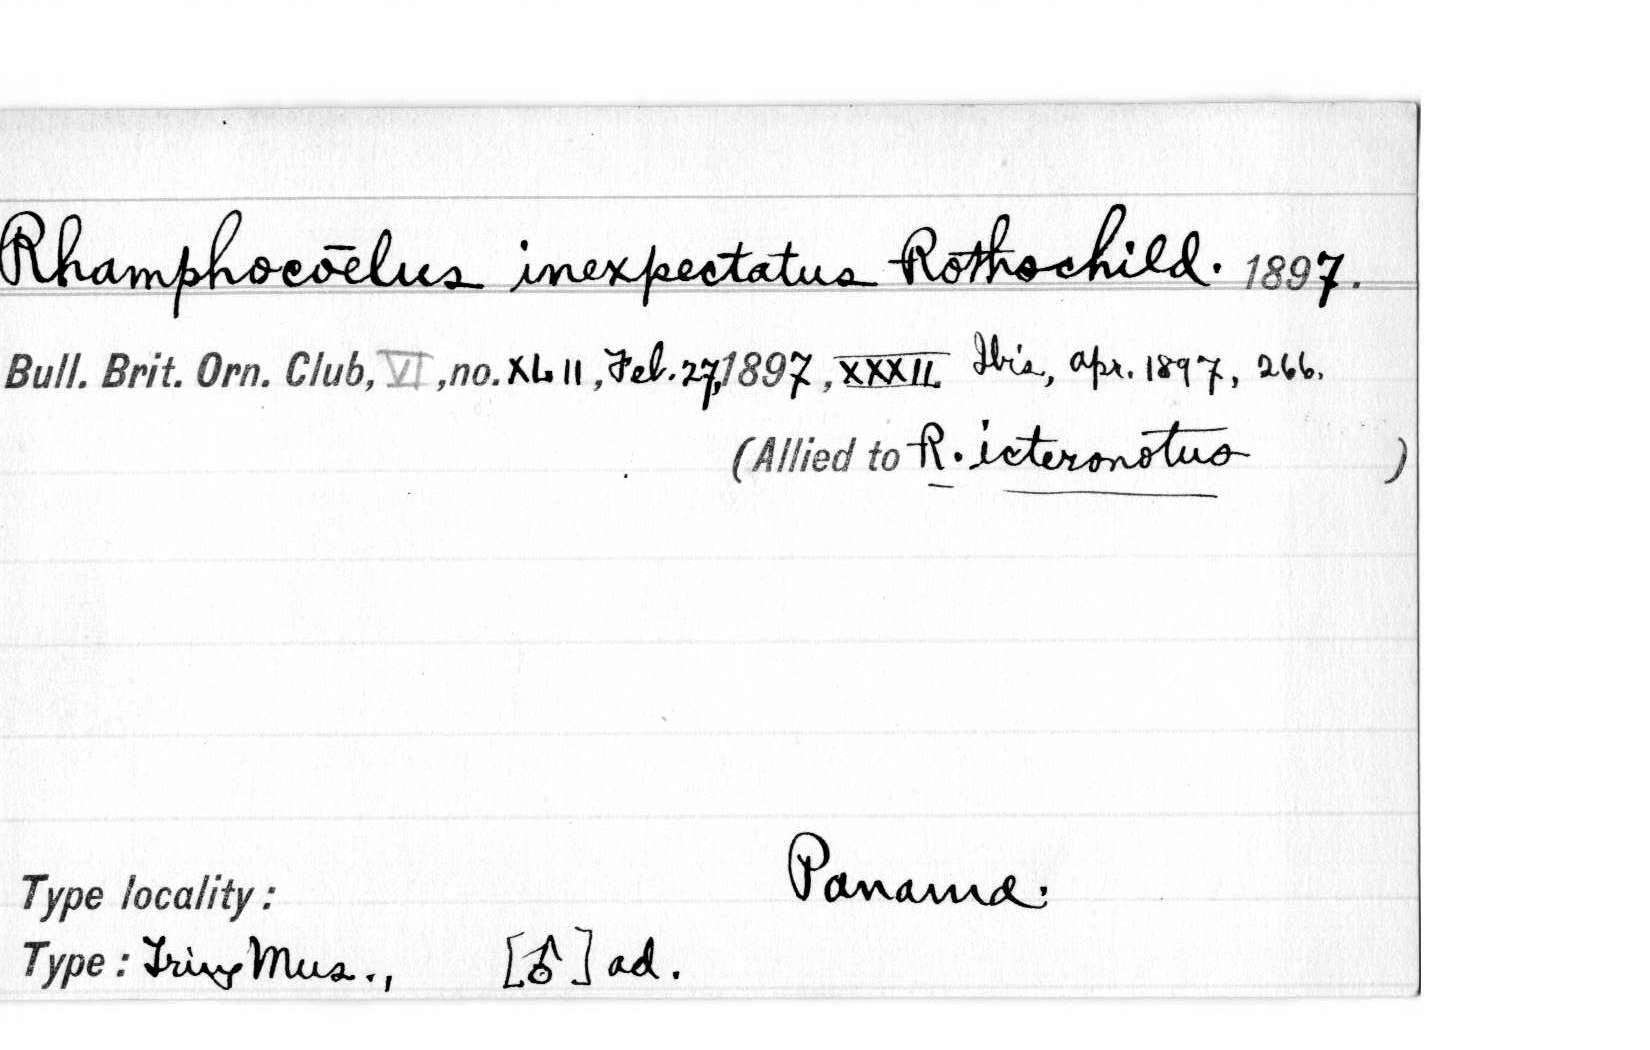 Rhamphocōelus inexpectatus Rothschild. 1897.
Bull. Brit. Orn. Club, VI, no. XLII, Feb. 27, 1897, XXXII. Ibis, Apr. 1897, 266.
(Allied to R. icteronotus )
Type locality: Panama:
Type: Tring Mus., [♂] ad.